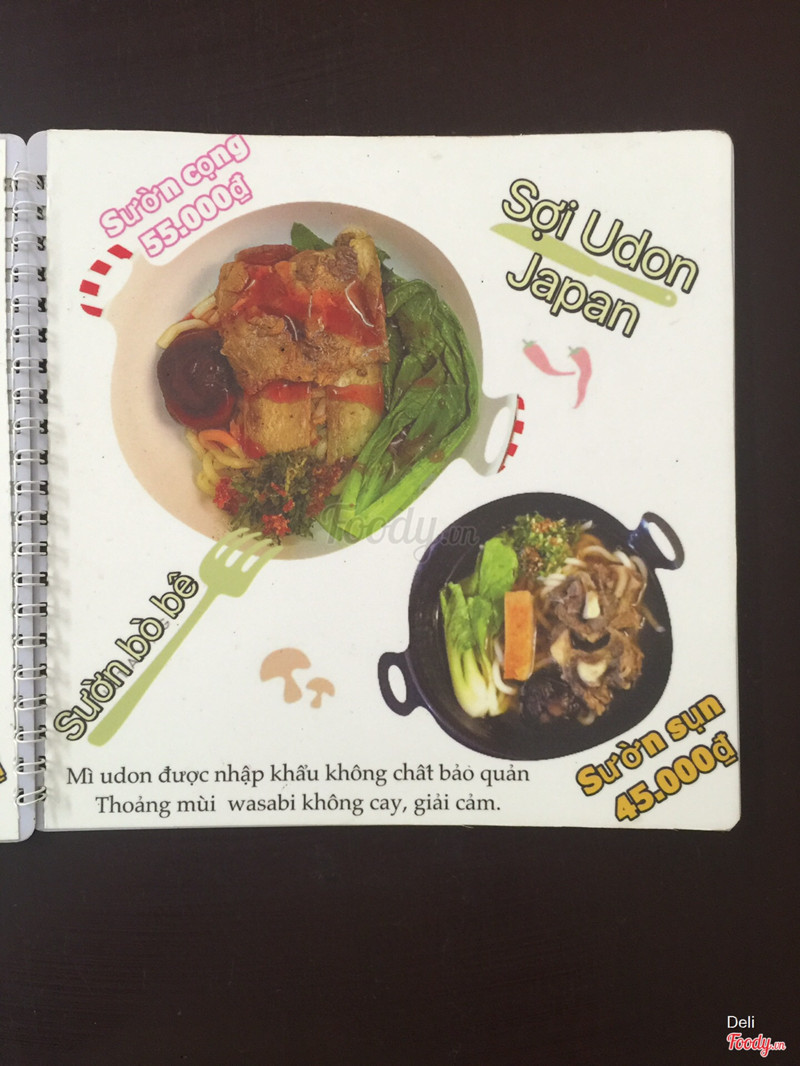 Sườn cọng
55.000₫
Sợi Udon
Japan
Foody.vn
Sườn bò bê
Sườn sụn
45.000₫
Mì udon được nhập khẩu không chất bảo quản
Thoảng mùi wasabi không cay, giải cảm.
Deli
Foody.vn